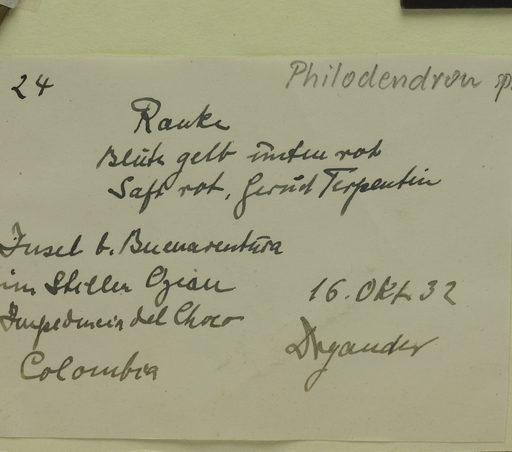 24
Philodendron sp.
Ranke
Blüte gelb unten rot
Saft rot, Geruch Terpentin
Insel b. Buenaventura
im Stillen Ozean
16. Okt. 32
del Choco
Dryander
Colombia